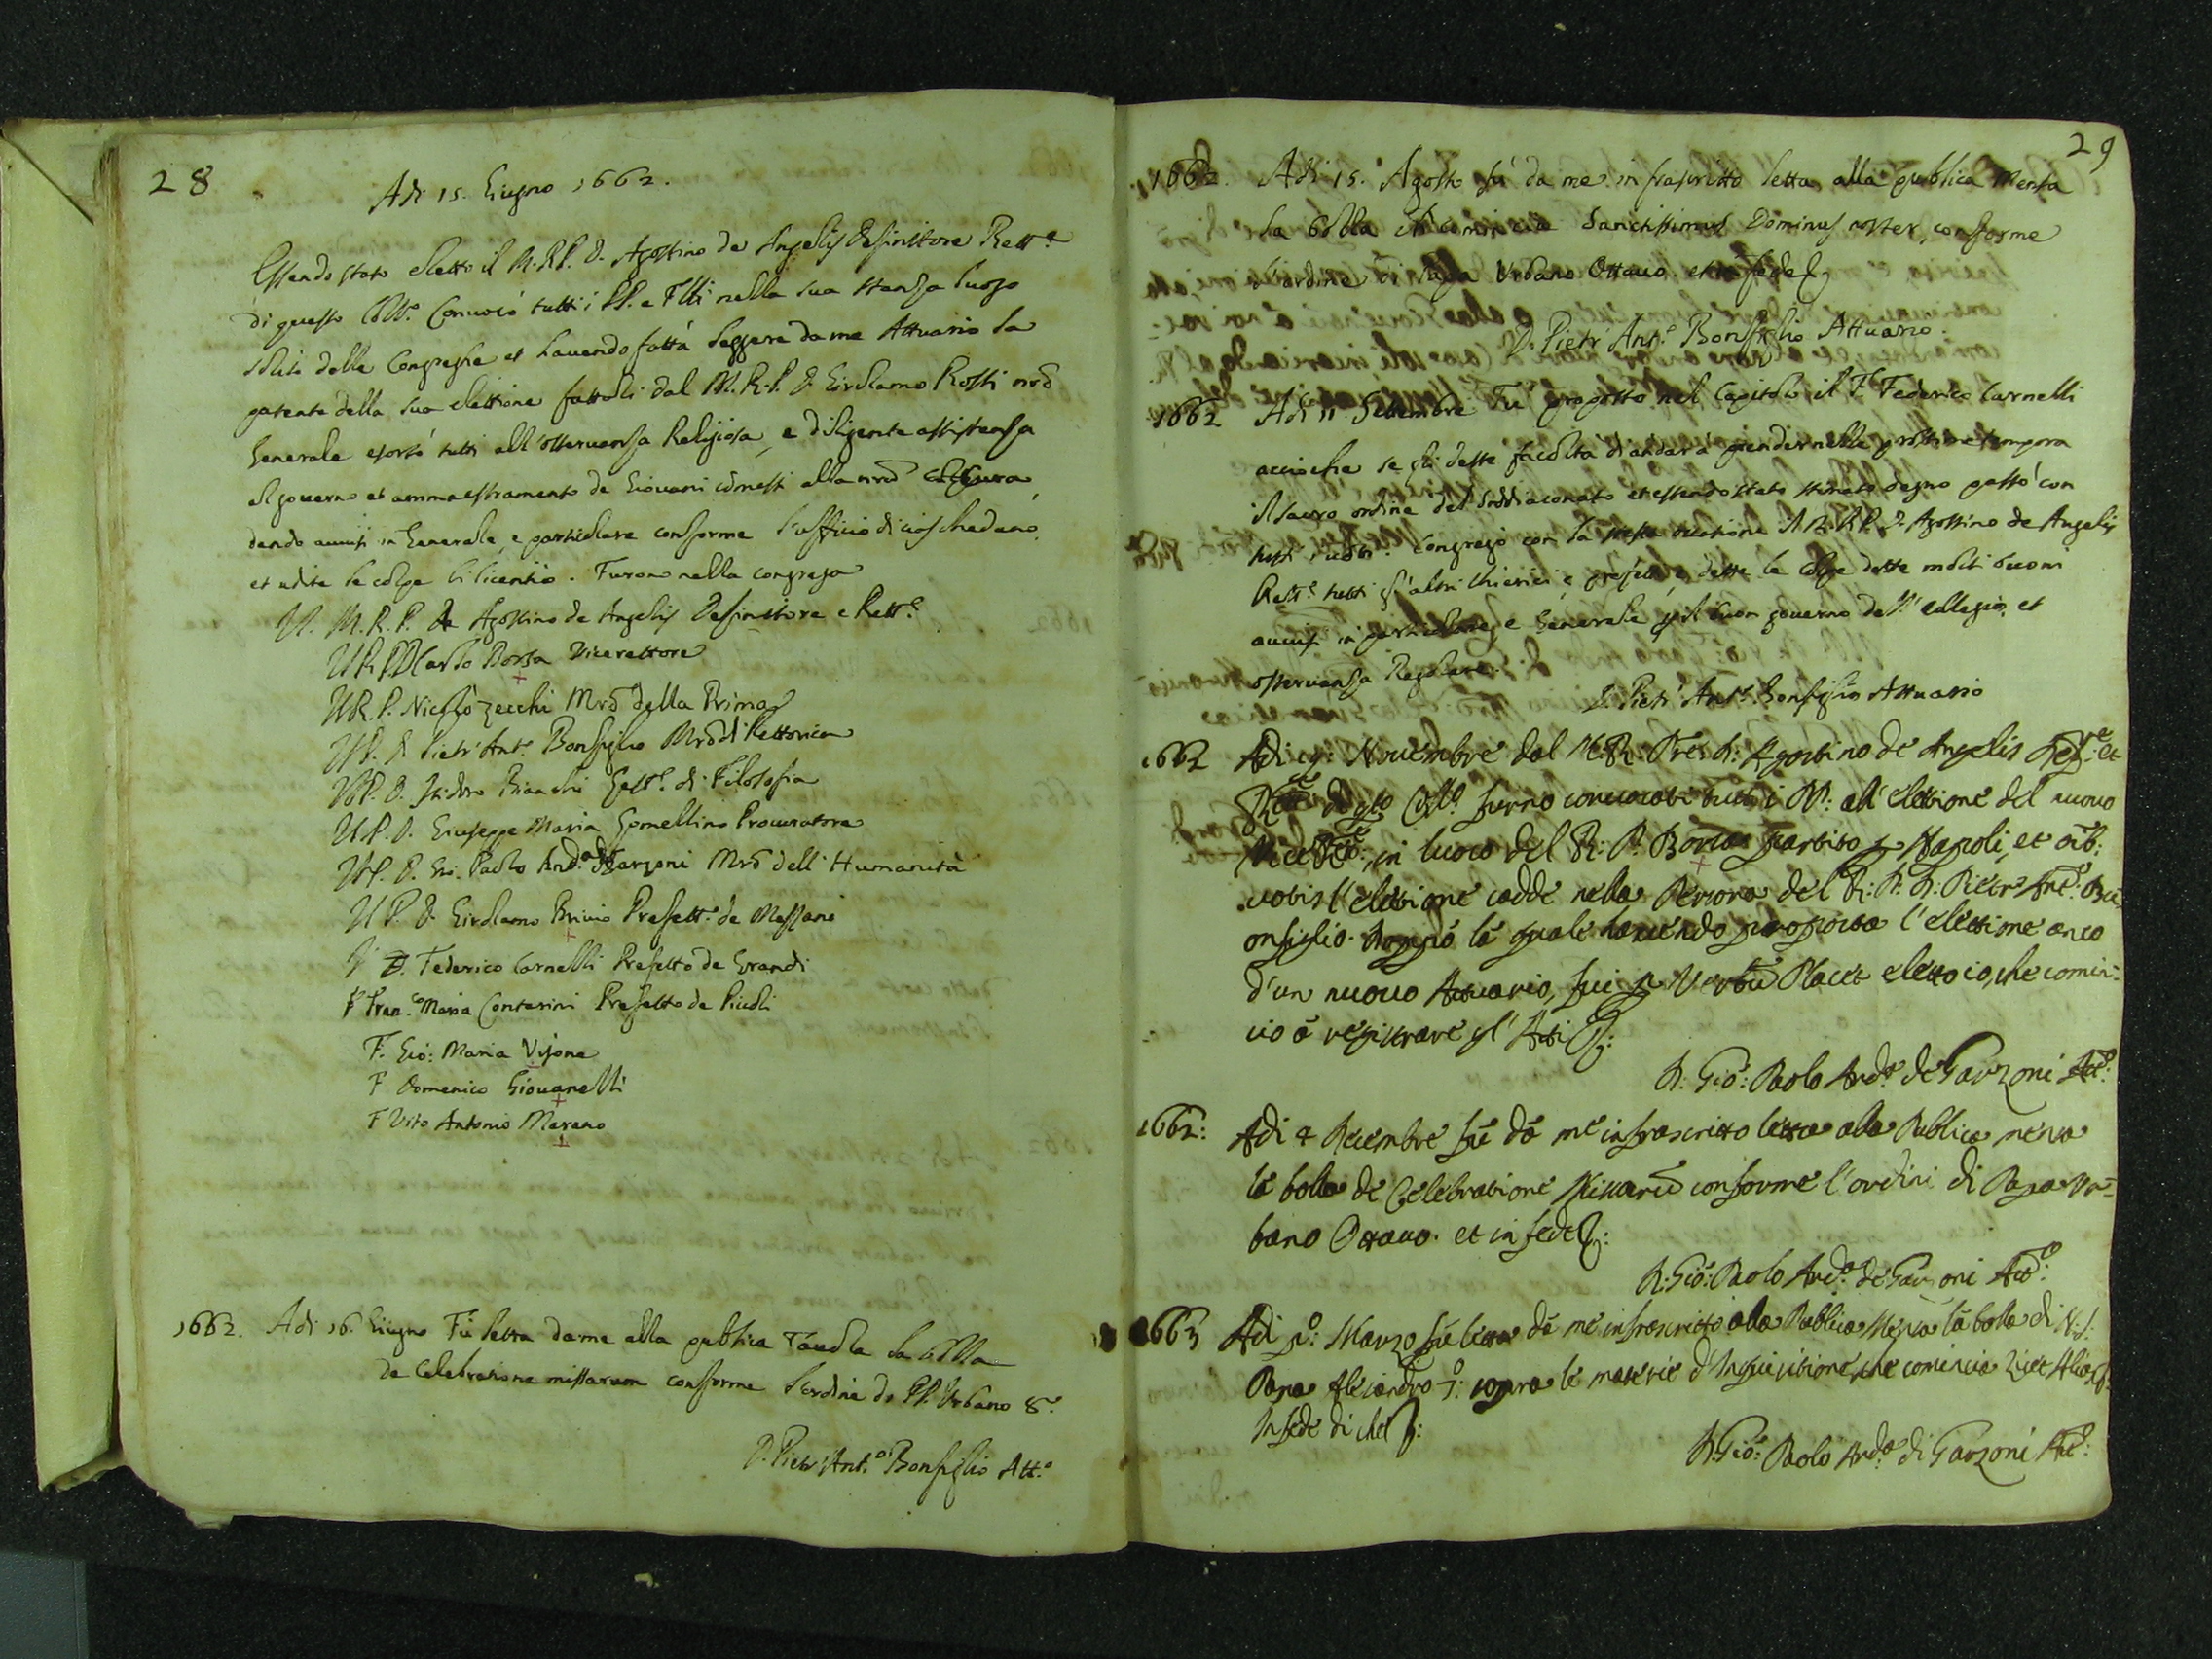 28
Adi 15. Giugno 1662.
Essendo stato eletto il M.R.P. D. Agostino de Angelis Definitore Rett.e
di questo Coll.o Convocò tutti i PP. e F'lli nella sua stanza luogo
solito delle Congreghe et havendo fatta leggere da me Attuario la
patente della sua elettione fattali dal M.R.P. D. Girolamo Rossi nr̃o
Generale esortò tutti all'osservanza Religiosa, e diligente assistenza
al governo et ammaestramento de Giovani comessi alla nr̃a cura
dando avvisi in Generale, e particolare conforme l'ufficio di ciascheduno,
et udite le colpe li licentiò. Furono nella congrega
Il M.R.P. D. Agostino de Angelis Definitore e Rett.e
Il R.P.D. Carlo Borsa Vicerettore
Il R.P. Nicolò Zecchi Mrõ della Prima
Il P. D. Pietr'Ant.o Bonfiglio Mrõ di Rettorica
Il P. D. Isidoro Bianchi Lett.e di Filosofia
Il P. D. Giuseppe Maria Gomellino Procuratore
Il P. D. Gio: Paolo And.a de Garzoni Mrõ dell'Humanità
Il P. D. Girolamo Brivio Prefett.o de Mezzani
F. Federico Carnelli Prefetto de Grandi
F. Fran.co Maria Contarini Prefetto de Picoli
F. Gio: Maria Visone
F Domenico Giovanelli
F Vito Antonio Marano
1662. Adi 16. Giugno Fù letta da me alla publica Tavola la bolla
de Celebratione missarum conforme l'ordine di PP. Urbano 8.o
D. Pietr'Ant.o Bonfiglio Att.o
29
1662. Adi 15. Agosto fù da me infrascritto letta alla publica Mensa
la bolla che comincia Sanctissimus Dominus noster, conforme
l'ordine di Papa Urbano Ottavo. et in fede
D. Pietr'Ant.o Bonfiglio Attuario.
1662 Adi 11 Settembre Fù proposto nel Capitolo il F. Federico Carnelli
accioche se gli desse facoltà di andar à prender nelle prossime tempora
il sacro ordine del soddiaconato et essendo stato stimato degno passò con
tutti i voti. Congregò con la stessa occasione il M.R.P. D. Agostino de Angelis
Rett.e tutti gl'altri Chierici, e dette le colpe dette molti buoni
avvisi in particolare, e Generale p il buon governo dell'collegio, et
osservanza Regolare.
D. Pietr'Ant.o Bonfiglio Attuario
1662 Adi 19: Novembre dal M.R. Pre D: Agostino de Angelis Def.re et
Rett.e di q.to Coll.o furno convocati tutti i PP: all'elettione del nuovo
Vice Rett.e: in luoco del R: P: Borsa partito p Napoli, et oib:
votis l'elettione cadde nella Persona del R: P: D: Pietr Ant.o: Bo-
onfiglio. Doppò la quale havendo proposta l'elettione anco
d'un nuovo Attuario, fui p Verbũ Placet eletto io, che comin-
cio à registrare gl'Atti
D: Gio: Paolo And.a de Garzoni Att.o:
1662: Adi 4 Decembre fù dà me infrascritto letta alla Publica mensa
la bolla de Celebratione Missarũ conforme l'ordini di Papa Ur-
bano Ottavo. et in fede
D: Gio: Paolo And.a de Garzoni Att.o:
1663 Adi p.o: Marzo fù letta dà me infrascritto alla Publica Mensa la bolla di N.S.
Papa Alesandro 7.o: sopra le materie d'Inquisitione, che comincia Licet Alias
In fede di che
D. Gio: Paolo And.a di Garzoni Att.o: